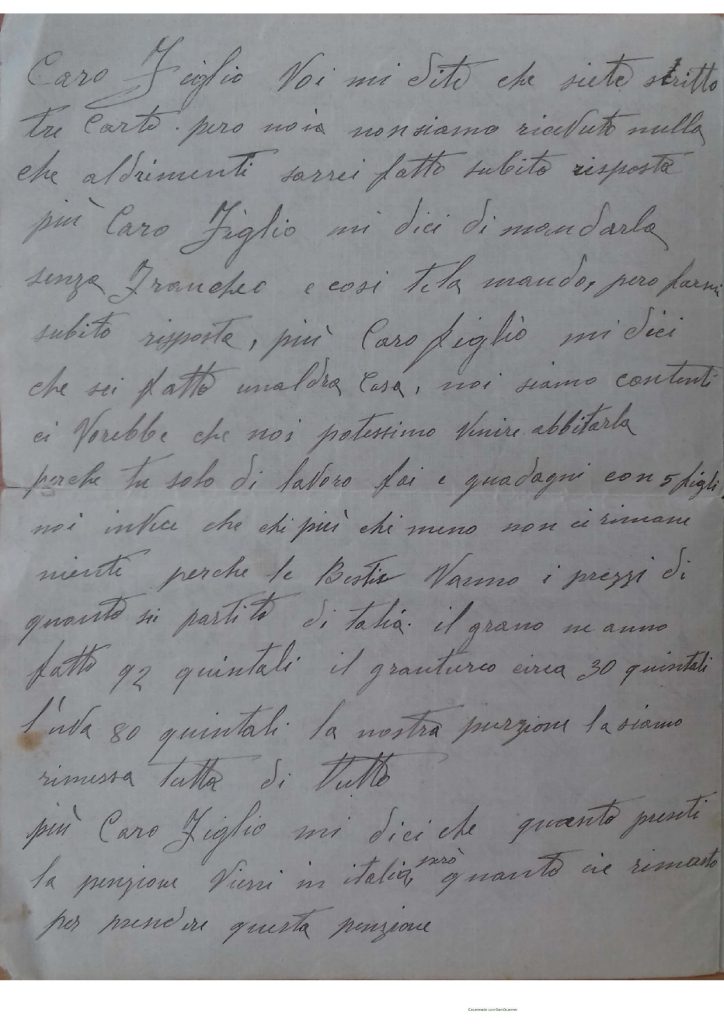 Caro Figlio Voi mi dite che siete scritto
tre Carte. pero noia non siamo riceVuto nulla
che aldrimenti sarrei fatto subito risposta
più Caro Figlio mi dici di mandarla
senza Francheo e cosi tela mando, pero farmi
subito risposta, più Caro figlio mi dici
che sei fatto unaldra Casa, noi siamo contenti
ci Vorebbe che noi potessimo Venire abbitarla
perche tu solo di lavoro fai e guadagni con 5 figli,
noi invice che chi più chi meno non ci rimane
niente perche le Bestie Vanno i prezzi di
quanto sii partito di talia. il grano ne anno
fatto 92 quintali il granturco circa 30 quintali
l'uva 80 quintali la nostra purzione la siamo
rimessa tutta di tutto
più Caro Figlio mi dici che quanto prenti
la penzione Vieni in italia, però quanto cie rimasto
per prendere questa penzione
Scansionato con CamScanner